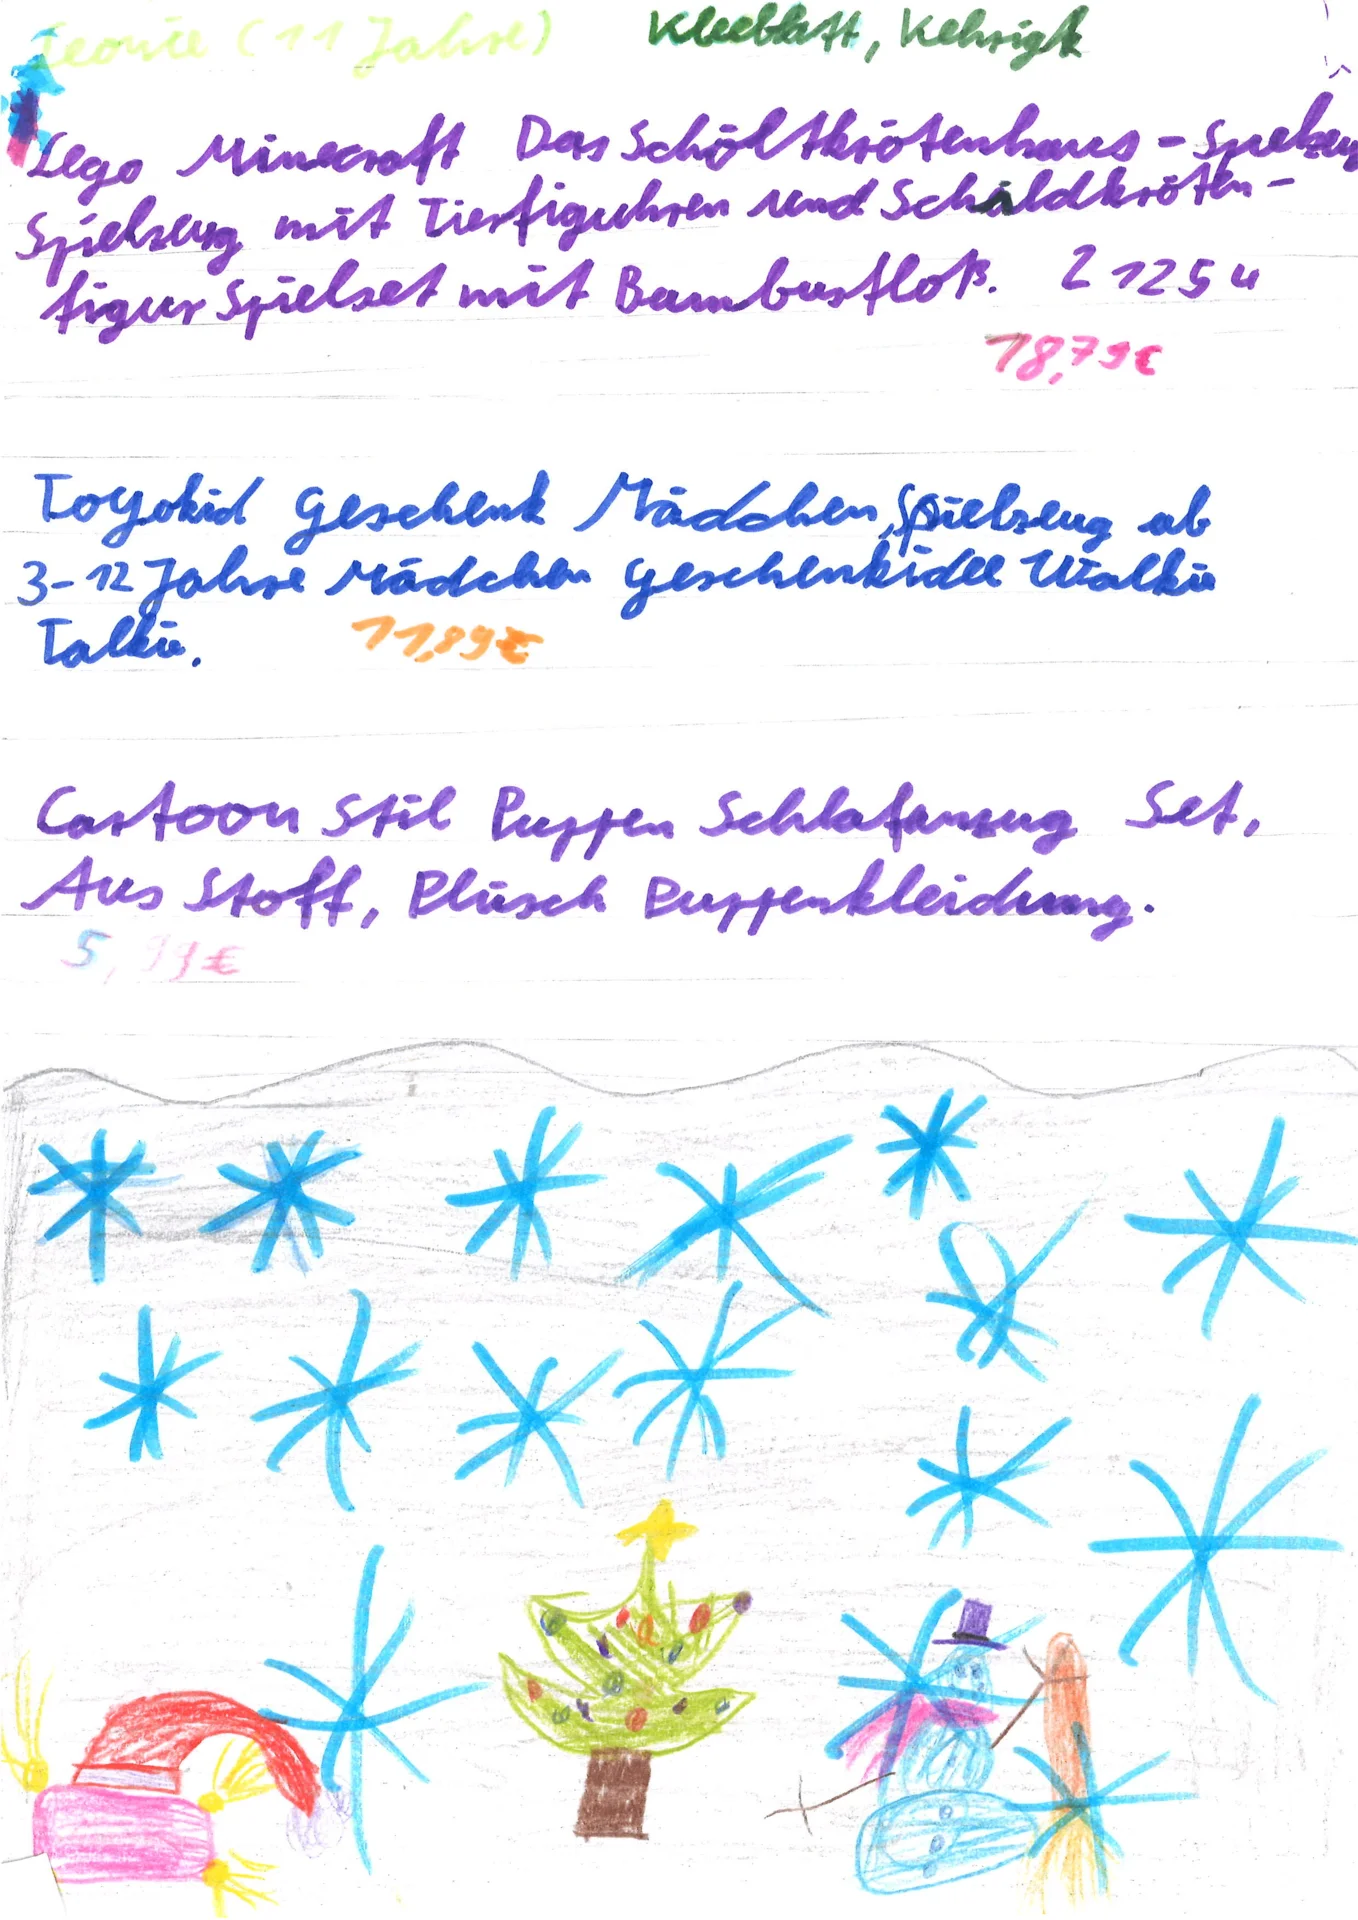 Leonie (11 Jahre) Kleeblatt, Kehrigk
Lego Minecraft Das Schöltkrötenhaus - Spielzeug
Spielzeug mit Tierfiguhren und Schildkröten-
figur Spielset mit Bambusfloß. 21254
18,79€
Toyokid Geschenk Mädchen, Spielzeug ab
3-12 Jahre Mädchen Geschenkidee Walkie
Talkie. 11,89€
Cartoon Stil Puppen Schlafanzug Set,
Aus Stoff, Plüsch Puppenkleidung.
5,99€